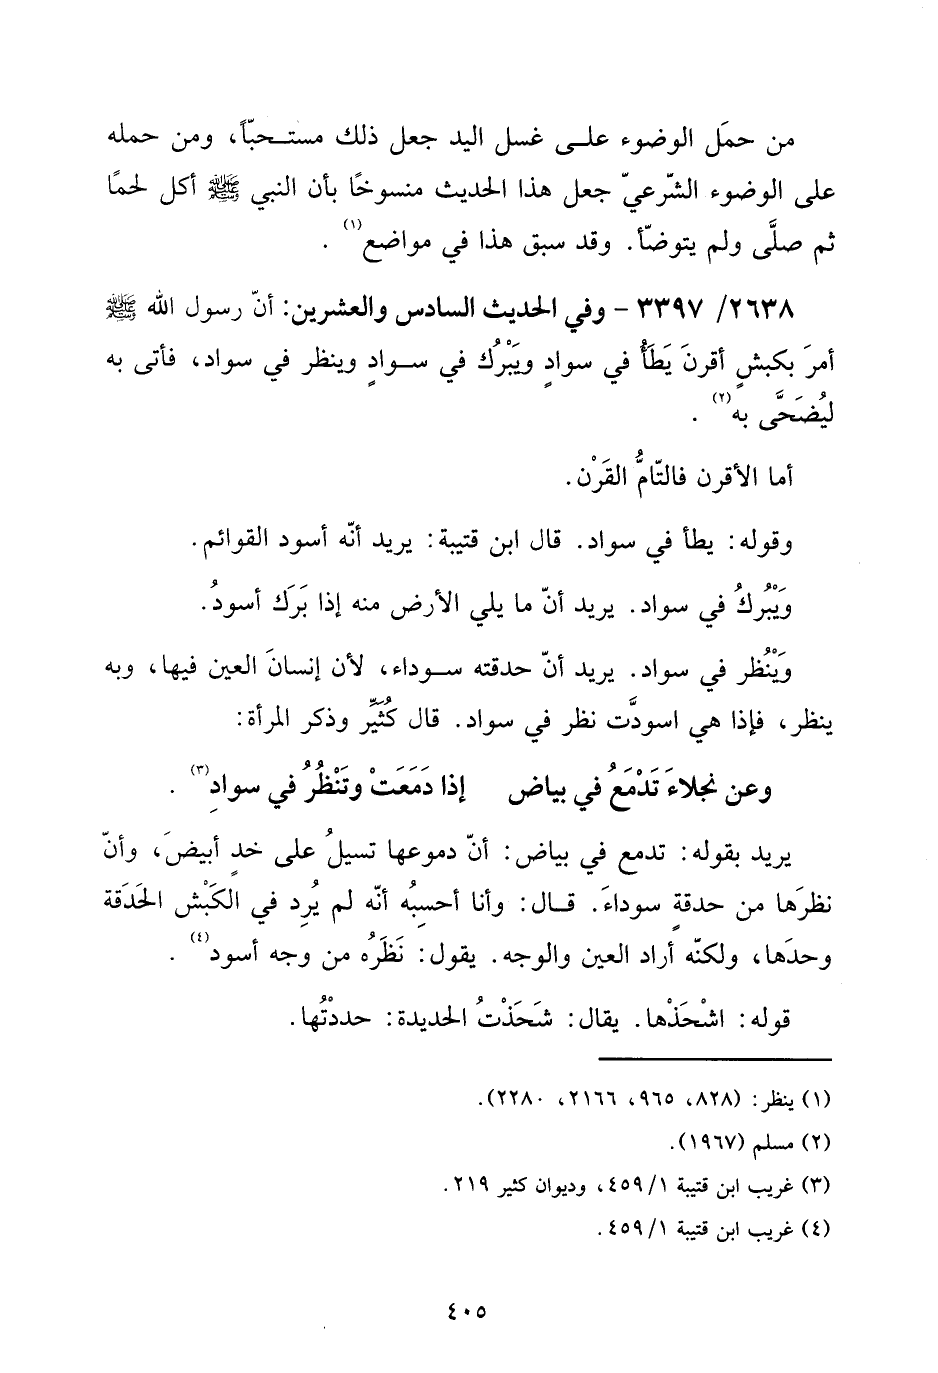 من حمَل الوضوء علـى غسل اليد جعل ذلك مستـحبّاً، ومن حمله
على الوضوء الشّرعيّ جعل هذا الحديث منسوخًا بأن النبي ﷺ أكل لحمًا
ثم صلَّى ولم يتوضّأ. وقد سبق هذا في مواضع(١) .
٢٦٣٨/ ٣٣٩٧ - وفي الحديث السادس والعشرين: أنّ رسول الله ﷺ
أمرَ بكبشٍ أقرنَ يَطَأُ في سوادٍ ويَبْرُك في سـوادٍ وينظر في سواد، فأتى به
ليُضَحَّى به(٢) .
أما الأقرن فالتّامُّ القَرْن.
وقوله: يطأ في سواد. قال ابن قتيبة: يريد أنّه أسود القوائم.
ويَبْرُكُ في سواد. يريد أنّ ما يلي الأرض منه إذا بَرَك أسودُ.
ويَنْظُر في سواد. يريد أنّ حدقته سـوداء، لأن إنسانَ العين فيها، وبه
ينظر، فإذا هي اسودَّت نظر في سواد. قال كُثَيِّر وذكر المرأة:
وعن نجلاءَ تَدْمَعُ في بياض إذا دَمَعَتْ وتَنْظُرُ في سوادِ(٣) .
يريد بقوله: تدمع في بياض: أنّ دموعها تسيلُ على خدٍ أبيضَ، وأنّ
نظرَها من حدقةٍ سوداءَ. قـال: وأنا أحسِبُه أنّه لم يُرِد في الكَبْش الحَدَقة
وحدَها، ولكنّه أراد العين والوجه. يقول: نَظَرُه من وجه أسود(٤) .
قوله: اشْحَذْها. يقال: شَحَذْتُ الحديدة: حددتُها.
(١) ينظر: (٨٢٨، ٩٦٥، ٢١٦٦، ٢٢٨٠).
(٢) مسلم (١٩٦٧).
(٣) غريب ابن قتيبة ١/ ٤٥٩، وديوان كثير ٢١٩.
(٤) غريب ابن قتيبة ١/ ٤٥٩.
٤٠٥